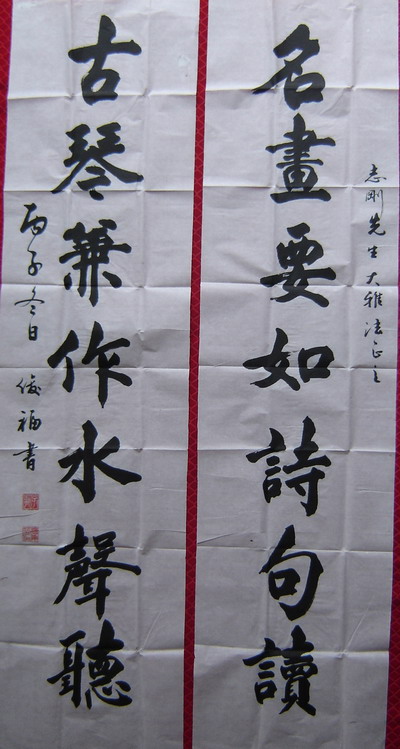 志剛先生大雅法正之
名畫要如詩句讀
古琴兼作水聲聽
丙子冬日 俊福書